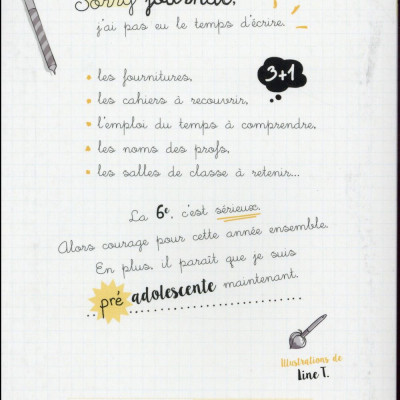 Sorry journal,
j'ai pas eu le temps d'écrire.
3+1
• les fournitures,
• les cahiers à recouvrir,
• l'emploi du temps à comprendre,
• les noms des profs,
• les salles de classe à retenir...
La 6e, c'est sérieux.
Alors courage pour cette année ensemble.
En plus, il paraît que je suis
pré adolescente maintenant.
Illustrations de
Line T.